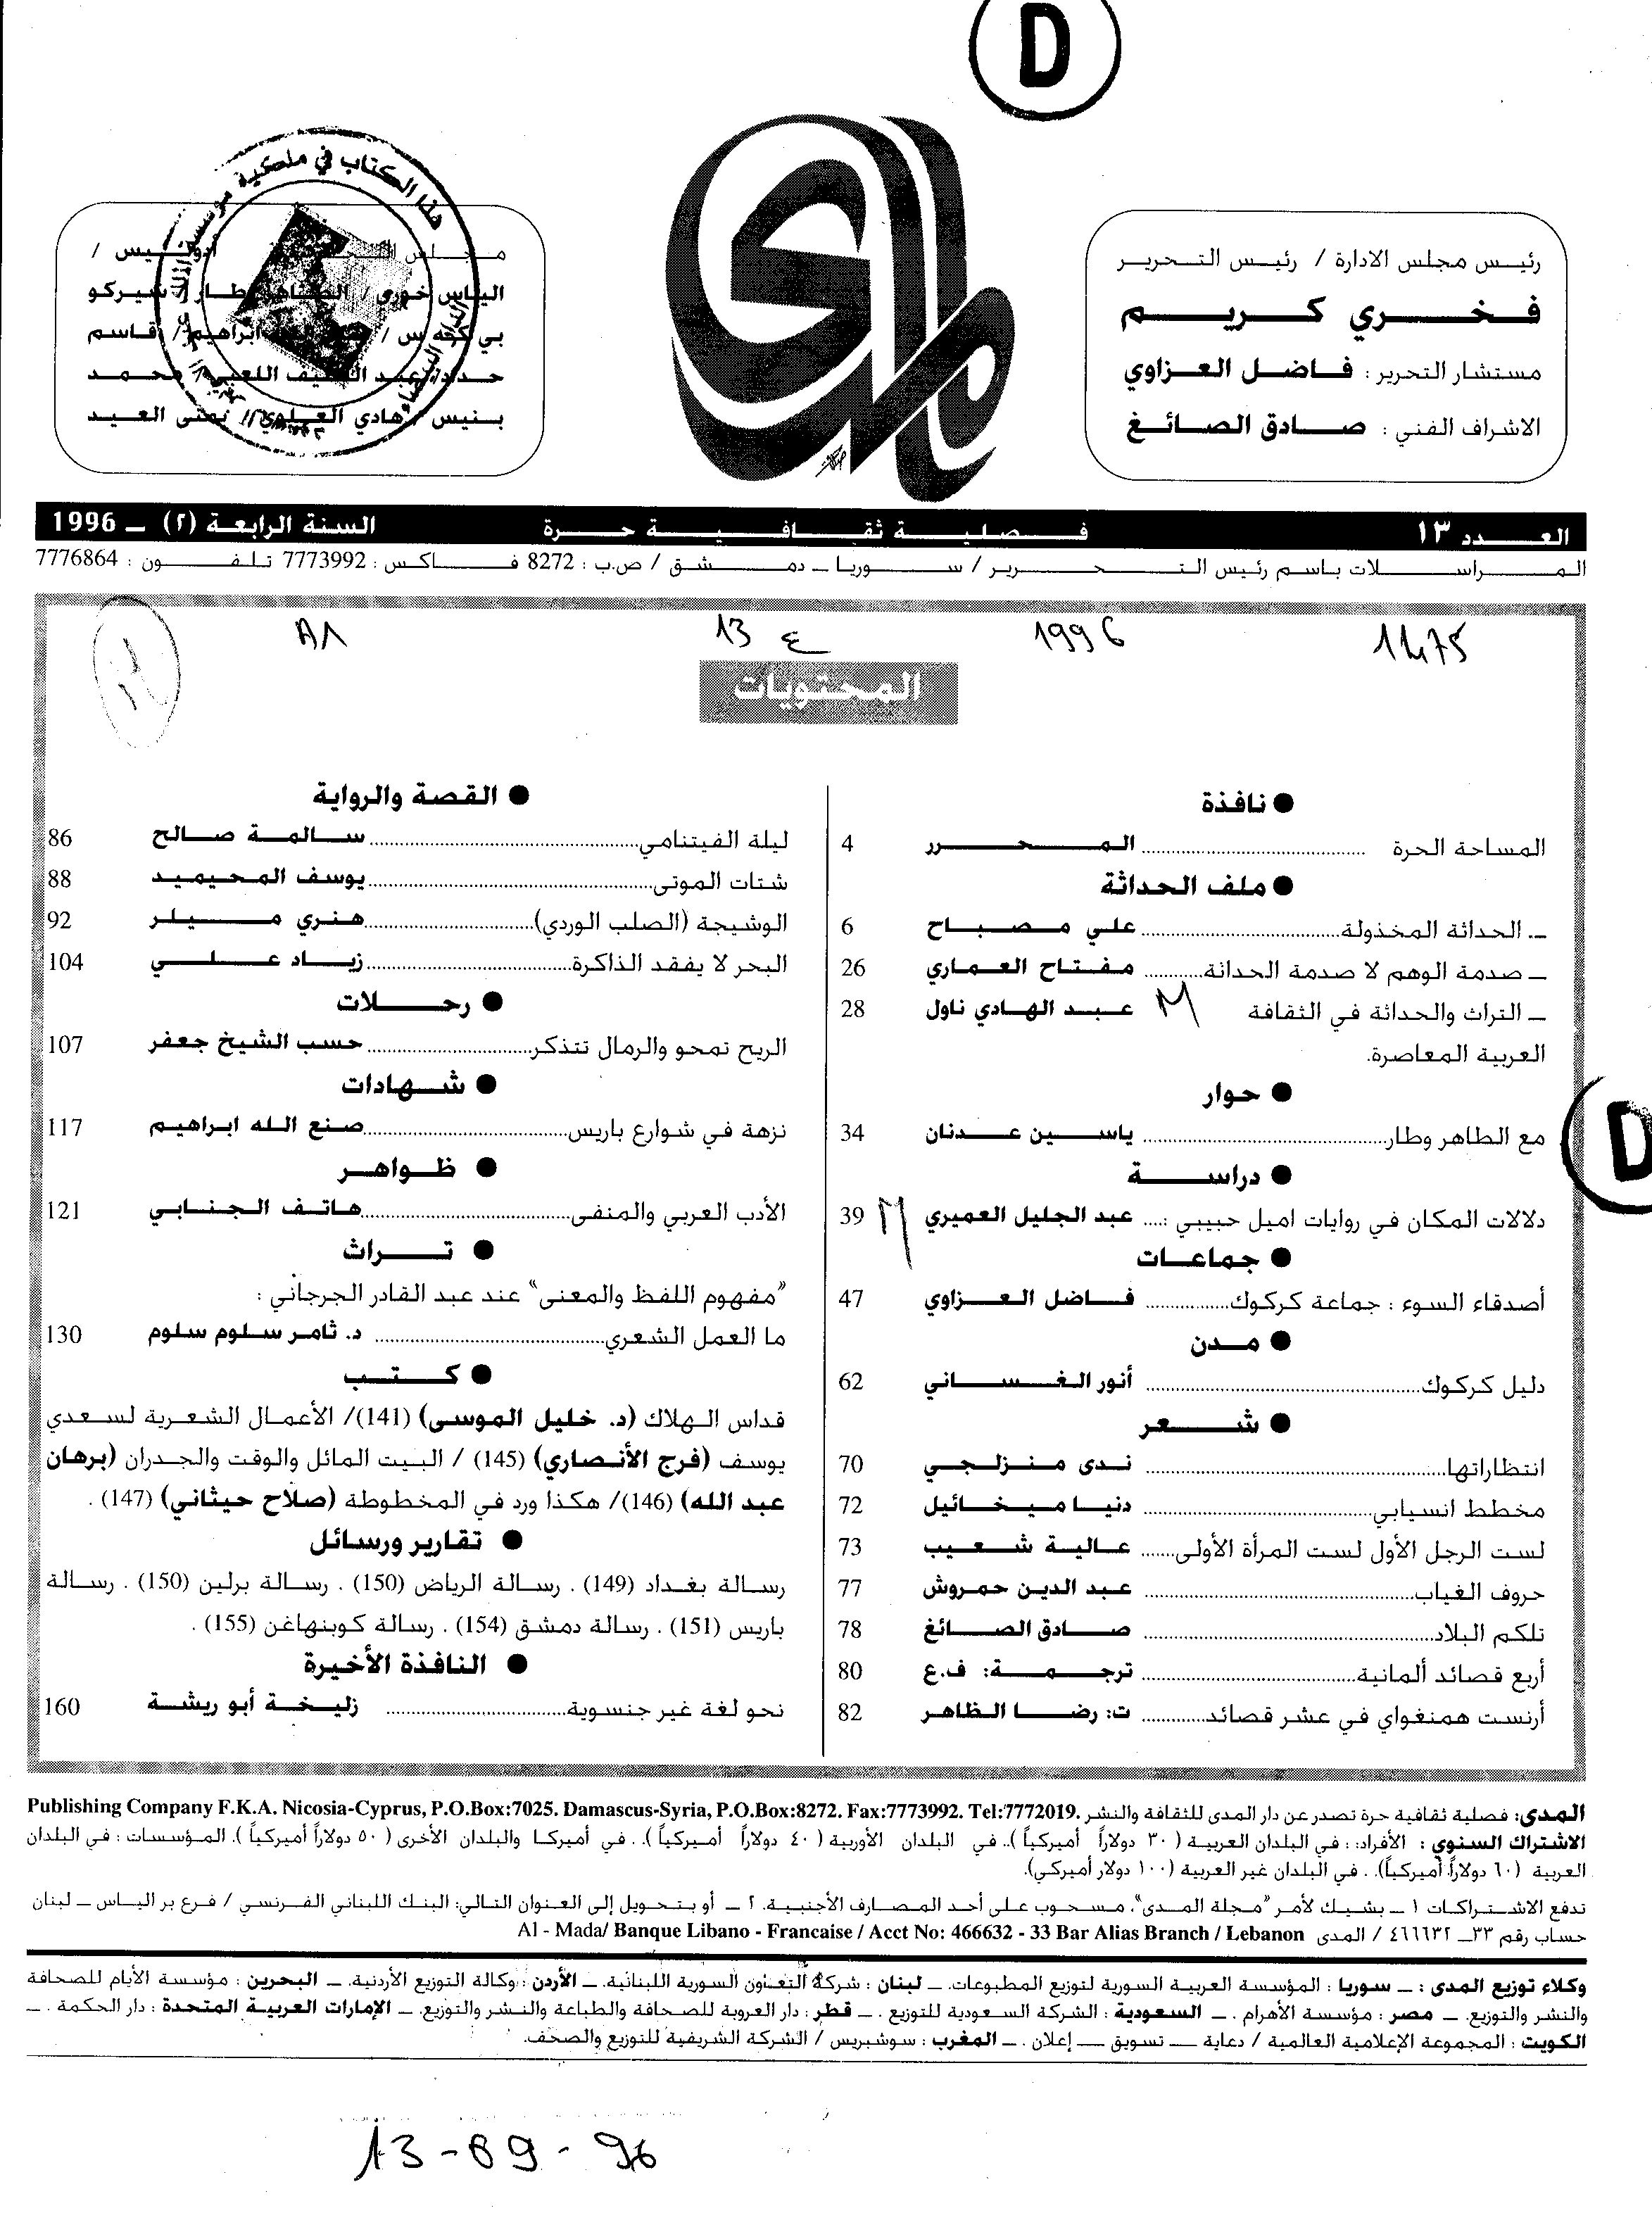 D
المدى
هذا الكتاب في ملكية مؤسسة الملك
رئيس مجلس الادارة / رئيس التحرير
فخري كريم
مستشار التحرير : فاضل العزاوي
الاشراف الفني : صادق الصائغ
أدونيس /
الياس خوري / الطاهر وطار / شيركو
بي كه س / ابراهيم / قاسم
حداد / عبد اللطيف اللعبي / محمد
بنيس / هادي العلوي / يمنى العيد
العدد ١٣
فصلية ثقافية حرة
السنة الرابعة (٢) – 1996
المراسلات باسم رئيس التحرير / سوريا – دمشق / ص.ب : 8272 فاكس : 7773992 تلفون : 7776864
1475
1996
ع 13
المحتويات
● نافذة
المساحة الحرة .......... المحرر 4
● ملف الحداثة
–. الحداثة المخذولة.......... علي مصباح 6
– صدمة الوهم لا صدمة الحداثة.......... مفتاح العماري 26
– التراث والحداثة في الثقافة M عبد الهادي ناول 28
العربية المعاصرة.
● حوار
مع الطاهر وطار.......... ياسين عدنان 34
● دراسة
دلالات المكان في روايات اميل حبيبي :.... عبد الجليل العميري 39 M
● جماعات
أصدقاء السوء : جماعة كركوك.......... فاضل العزاوي 47
● مدن
دليل كركوك.......... أنور الغساني 62
● شعر
انتظاراتها.......... ندى منزلجي 70
مخطط انسيابي.......... دنيا ميخائيل 72
لست الرجل الأول لست المرأة الأولى....... عالية شعيب 73
حروف الغياب.......... عبد الدين حمروش 77
تلكم البلاد.......... صادق الصائغ 78
أربع قصائد ألمانية.......... ترجمة: ف.ع 80
أرنست همنغواي في عشر قصائد.......... ت: رضا الظاهر 82
● القصة والرواية
ليلة الفيتنامي.......... سالمة صالح 86
شتات الموتى.......... يوسف المحيميد 88
الوشيجة (الصلب الوردي).......... هنري ميلر 92
البحر لا يفقد الذاكرة.......... زياد علي 104
● رحلات
الريح تمحو والرمال تتذكر.......... حسب الشيخ جعفر 107
● شهادات
نزهة في شوارع باريس.......... صنع الله ابراهيم 117
● ظواهر
الأدب العربي والمنفى.......... هاتف الجنابي 121
● تراث
"مفهوم اللفظ والمعنى" عند عبد القادر الجرجاني :
ما العمل الشعري.......... د. ثامر سلوم سلوم 130
● كتب
قداس الهلاك (د. خليل الموسى) (141)/ الأعمال الشعرية لسعدي
يوسف (فرج الأنصاري) (145) / البيت المائل والوقت والجدران (برهان
عبد الله) (146)/ هكذا ورد في المخطوطة (صلاح حيثاني) (147) .
● تقارير ورسائل
رسالة بغداد (149) . رسالة الرياض (150) . رسالة برلين (150) . رسالة
باريس (151) . رسالة دمشق (154) . رسالة كوبنهاغن (155) .
● النافذة الأخيرة
نحو لغة غير جنسوية.......... زليخة أبو ريشة 160
D
المدى: فصلية ثقافية حرة تصدر عن دار المدى للثقافة والنشر .Publishing Company F.K.A. Nicosia-Cyprus, P.O.Box:7025. Damascus-Syria, P.O.Box:8272. Fax:7773992. Tel:7772019
الاشتراك السنوي : الأفراد: : في البلدان العربية ( ٣٠ دولاراً أميركياً ).. في البلدان الأوربية ( ٤٠ دولاراً أميركياً ). . في أميركا والبلدان الأخرى ( ٥٠ دولاراً أميركياً ). المؤسسات : في البلدان
العربية (٦٠ دولاراً أميركياً). . في البلدان غير العربية (١٠٠ دولار أميركي).
تدفع الاشتراكات ١ – بشيك لأمر "مجلة المدى"، مسحوب على أحد المصارف الأجنبية. ٢ – أو بتحويل إلى العنوان التالي: البنك اللبناني الفرنسي / فرع بر الياس – لبنان
حساب رقم ٣٣– ٤٦٦٦٣٢ / المدى Al - Mada/ Banque Libano - Francaise / Acct No: 466632 - 33 Bar Alias Branch / Lebanon
وكلاء توزيع المدى : – سوريا : المؤسسة العربية السورية لتوزيع المطبوعات. – لبنان : شركة التعاون السورية اللبنانية. – الأردن : وكالة التوزيع الأردنية. – البحرين : مؤسسة الأيام للصحافة
والنشر والتوزيع. – مصر : مؤسسة الأهرام . – السعودية : الشركة السعودية للتوزيع . – قطر : دار العروبة للصحافة والطباعة والنشر والتوزيع. – الإمارات العربية المتحدة : دار الحكمة . –
الكويت : المجموعة الإعلامية العالمية / دعاية – تسويق – إعلان . – المغرب : سوشبريس / الشركة الشريفية للتوزيع والصحف.
13-09-96